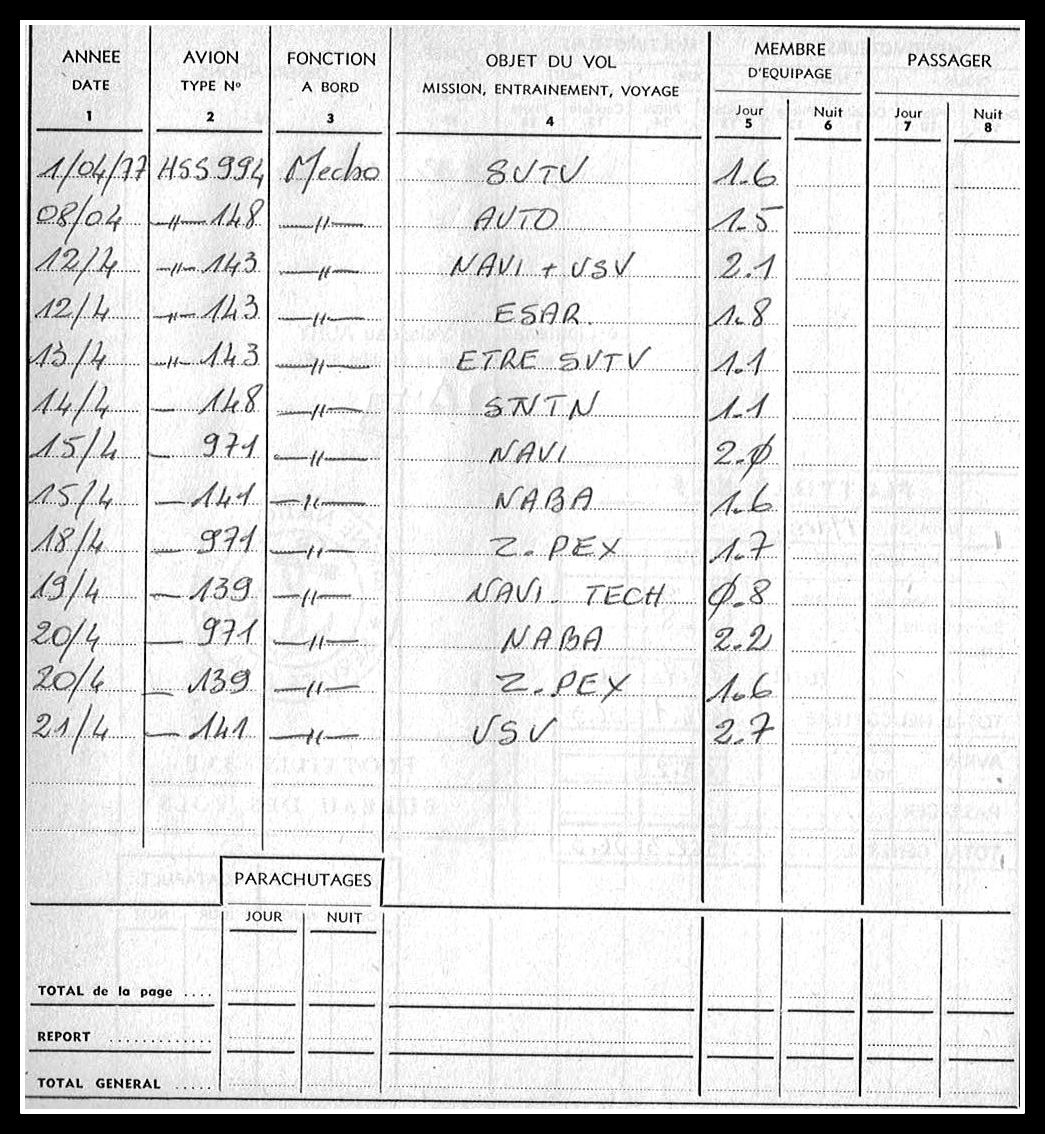 ANNEE AVION FONCTION OBJET DU VOL MEMBRE PASSAGER
DATE TYPE Nº A BORD MISSION, ENTRAINEMENT, VOYAGE D'EQUIPAGE
Jour Nuit Jour Nuit
1 2 3 4 5 6 7 8
1/04/77 HSS 994 Mecbo SVTV 1.6
08/04 —〃— 148 —〃— AUTO 1.5
12/4 —〃— 143 —〃— NAVI + VSV 2.1
12/4 —〃— 143 —〃— ESAR 1.8
13/4 —〃— 143 —〃— ETRE SVTV 1.1
14/4 — 148 —〃— SNTN 1.1
15/4 — 971 —〃— NAVI 2.Ø
15/4 — 141 —〃— NABA 1.6
18/4 — 971 —〃— Z.PEX 1.7
19/4 — 139 —〃— NAVI TECH Ø.8
20/4 — 971 —〃— NABA 2.2
20/4 — 139 —〃— Z.PEX 1.6
21/4 — 141 —〃— VSV 2.7
PARACHUTAGES
JOUR NUIT
TOTAL de la page ....
REPORT .............
TOTAL GENERAL .....